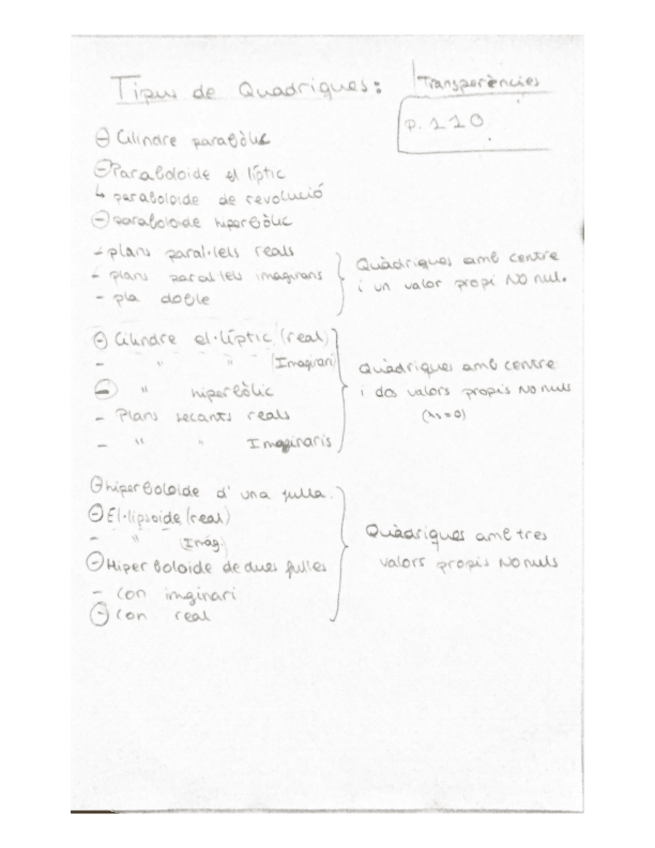 Tipus de Quadriques:
Transparències
p. 110
Cilindre parabòlic
Paraboloide el líptic
↳ paraboloide de revolució
paraboloide hiperbòlic
- plans paral·lels reals
- plans paral·lels imaginaris
- pla doble
Quàdriques amb centre
i un valor propi NO nul.
Cilindre el·líptic (real)
- " " (Imaginari)
" hiperbòlic
- Plans secants reals
- " " Imaginaris
Quàdriques amb centre
i dos valors propis No nuls
(λ₃=0)
hiperboloide d'una fulla.
El·lipsoide (real)
- " (Imag.)
Hiperboloide de dues fulles
- con imginari
con real
Quàdriques amb tres
valors propis No nuls